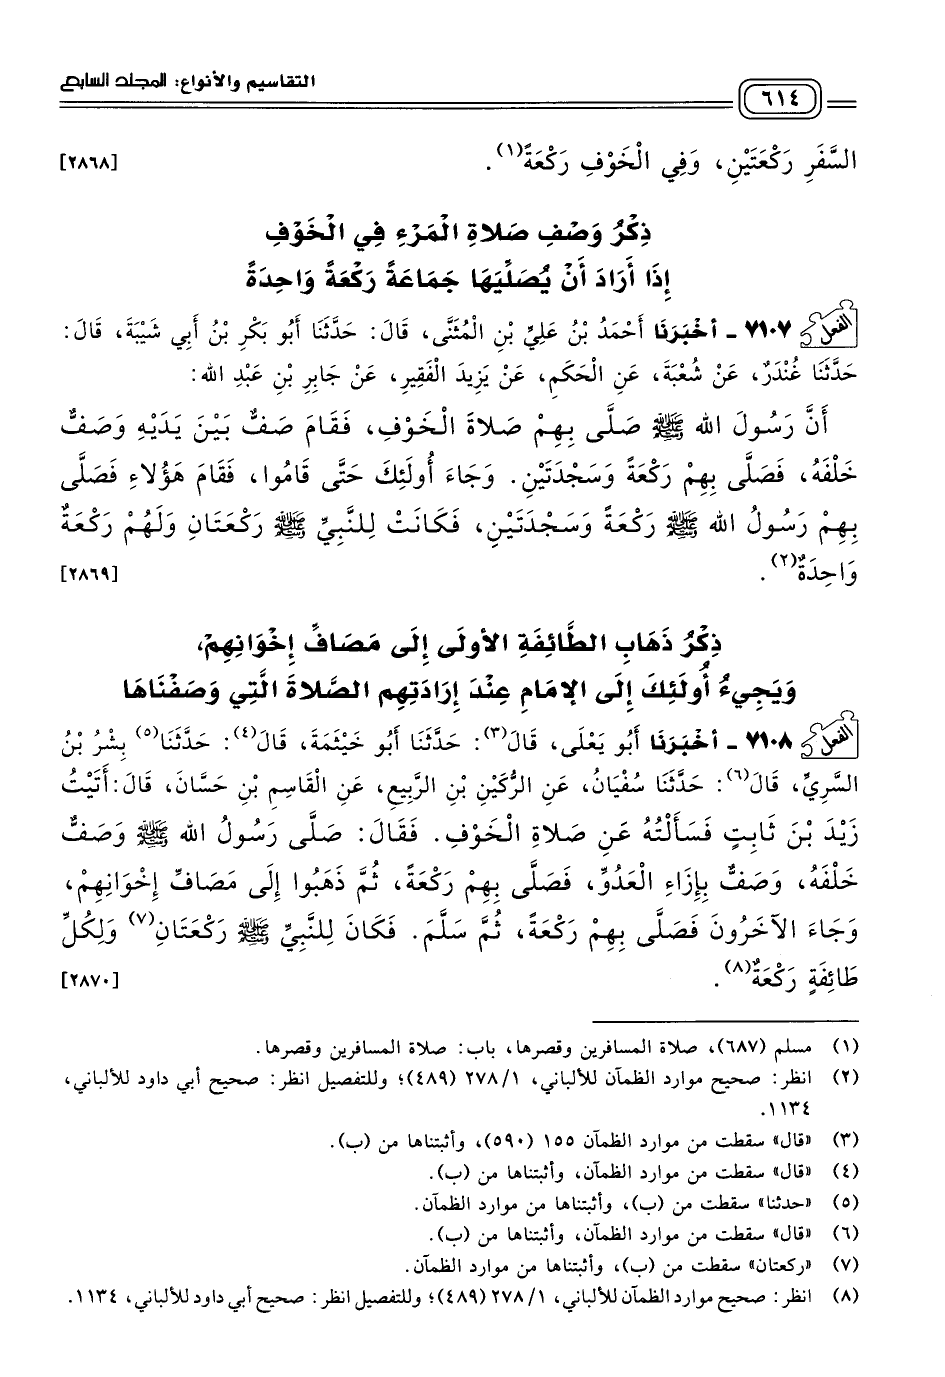 التقاسيم والأنواع: المجلد السابع
٦١٤
السَّفَرِ رَكْعَتَيْنِ، وَفِي الْخَوْفِ رَكْعَةً(١). [٢٨٦٨]
ذِكْرُ وَصْفِ صَلاةِ الْمَرْءِ فِي الْخَوْفِ
إِذَا أَرَادَ أَنْ يُصَلِّيَهَا جَمَاعَةً رَكْعَةً وَاحِدَةً
الفعل ٧١٠٧ - أخْبَرَنَا أَحْمَدُ بْنُ عَلِيِّ بْنِ الْمُثَنَّى، قَالَ: حَدَّثَنَا أَبُو بَكْرِ بْنُ أَبِي شَيْبَةَ، قَالَ:
حَدَّثَنَا غُنْدَرٌ، عَنْ شُعْبَةَ، عَنِ الْحَكَمِ، عَنْ يَزِيدَ الْفَقِيرِ، عَنْ جَابِرِ بْنِ عَبْدِ الله:
أَنَّ رَسُولَ الله ﷺ صَلَّى بِهِمْ صَلاةَ الْخَوْفِ، فَقَامَ صَفٌّ بَيْنَ يَدَيْهِ وَصَفٌّ
خَلْفَهُ، فَصَلَّى بِهِمْ رَكْعَةً وَسَجْدَتَيْنِ. وَجَاءَ أُولَئِكَ حَتَّى قَامُوا، فَقَامَ هَؤُلاءِ فَصَلَّى
بِهِمْ رَسُولُ الله ﷺ رَكْعَةً وَسَجْدَتَيْنِ، فَكَانَتْ لِلنَّبِيِّ ﷺ رَكْعَتَانِ وَلَهُمْ رَكْعَةٌ
وَاحِدَةٌ(٢). [٢٨٦٩]
ذِكْرُ ذَهَابِ الطَّائِفَةِ الأولَى إِلَى مَصَافِّ إِخْوَانِهِمْ،
وَيَجِيءُ أُولَئِكَ إِلَى الإمَامِ عِنْدَ إِرَادَتِهِم الصَّلاةَ الَّتِي وَصَفْنَاهَا
الفعل ٧١٠٨ - أخْبَرَنَا أَبُو يَعْلَى، قَالَ(٣): حَدَّثَنَا أَبُو خَيْثَمَةَ، قَالَ(٤): حَدَّثَنَا(٥) بِشْرُ بْنُ
السَّرِيِّ، قَالَ(٦): حَدَّثَنَا سُفْيَانُ، عَنِ الرُّكَيْنِ بْنِ الرَّبِيعِ، عَنِ الْقَاسِمِ بْنِ حَسَّانَ، قَالَ: أَتَيْتُ
زَيْدَ بْنَ ثَابِتٍ فَسَأَلْتُهُ عَنِ صَلاةِ الْخَوْفِ. فَقَالَ: صَلَّى رَسُولُ الله ﷺ وَصَفٌّ
خَلْفَهُ، وَصَفٌّ بِإِزَاءِ الْعَدُوِّ، فَصَلَّى بِهِمْ رَكْعَةً، ثُمَّ ذَهَبُوا إِلَى مَصَافِّ إِخْوَانِهِمْ،
وَجَاءَ الآخَرُونَ فَصَلَّى بِهِمْ رَكْعَةً، ثُمَّ سَلَّمَ. فَكَانَ لِلنَّبِيِّ ﷺ رَكْعَتَانِ(٧) وَلِكُلِّ
طَائِفَةٍ رَكْعَةٌ(٨). [٢٨٧٠]
(١) مسلم (٦٨٧)، صلاة المسافرين وقصرها، باب: صلاة المسافرين وقصرها.
(٢) انظر: صحيح موارد الظمآن للألباني، ١/ ٢٧٨ (٤٨٩)؛ وللتفصيل انظر: صحيح أبي داود للألباني،
١١٣٤.
(٣) «قال» سقطت من موارد الظمآن ١٥٥ (٥٩٠)، وأثبتناها من (ب).
(٤) «قال» سقطت من موارد الظمآن، وأثبتناها من (ب).
(٥) «حدثنا» سقطت من (ب)، وأثبتناها من موارد الظمآن.
(٦) «قال» سقطت من موارد الظمآن، وأثبتناها من (ب).
(٧) «ركعتان» سقطت من (ب)، وأثبتناها من موارد الظمآن.
(٨) انظر: صحيح موارد الظمآن للألباني، ١/ ٢٧٨ (٤٨٩)؛ وللتفصيل انظر: صحيح أبي داود للألباني، ١١٣٤.